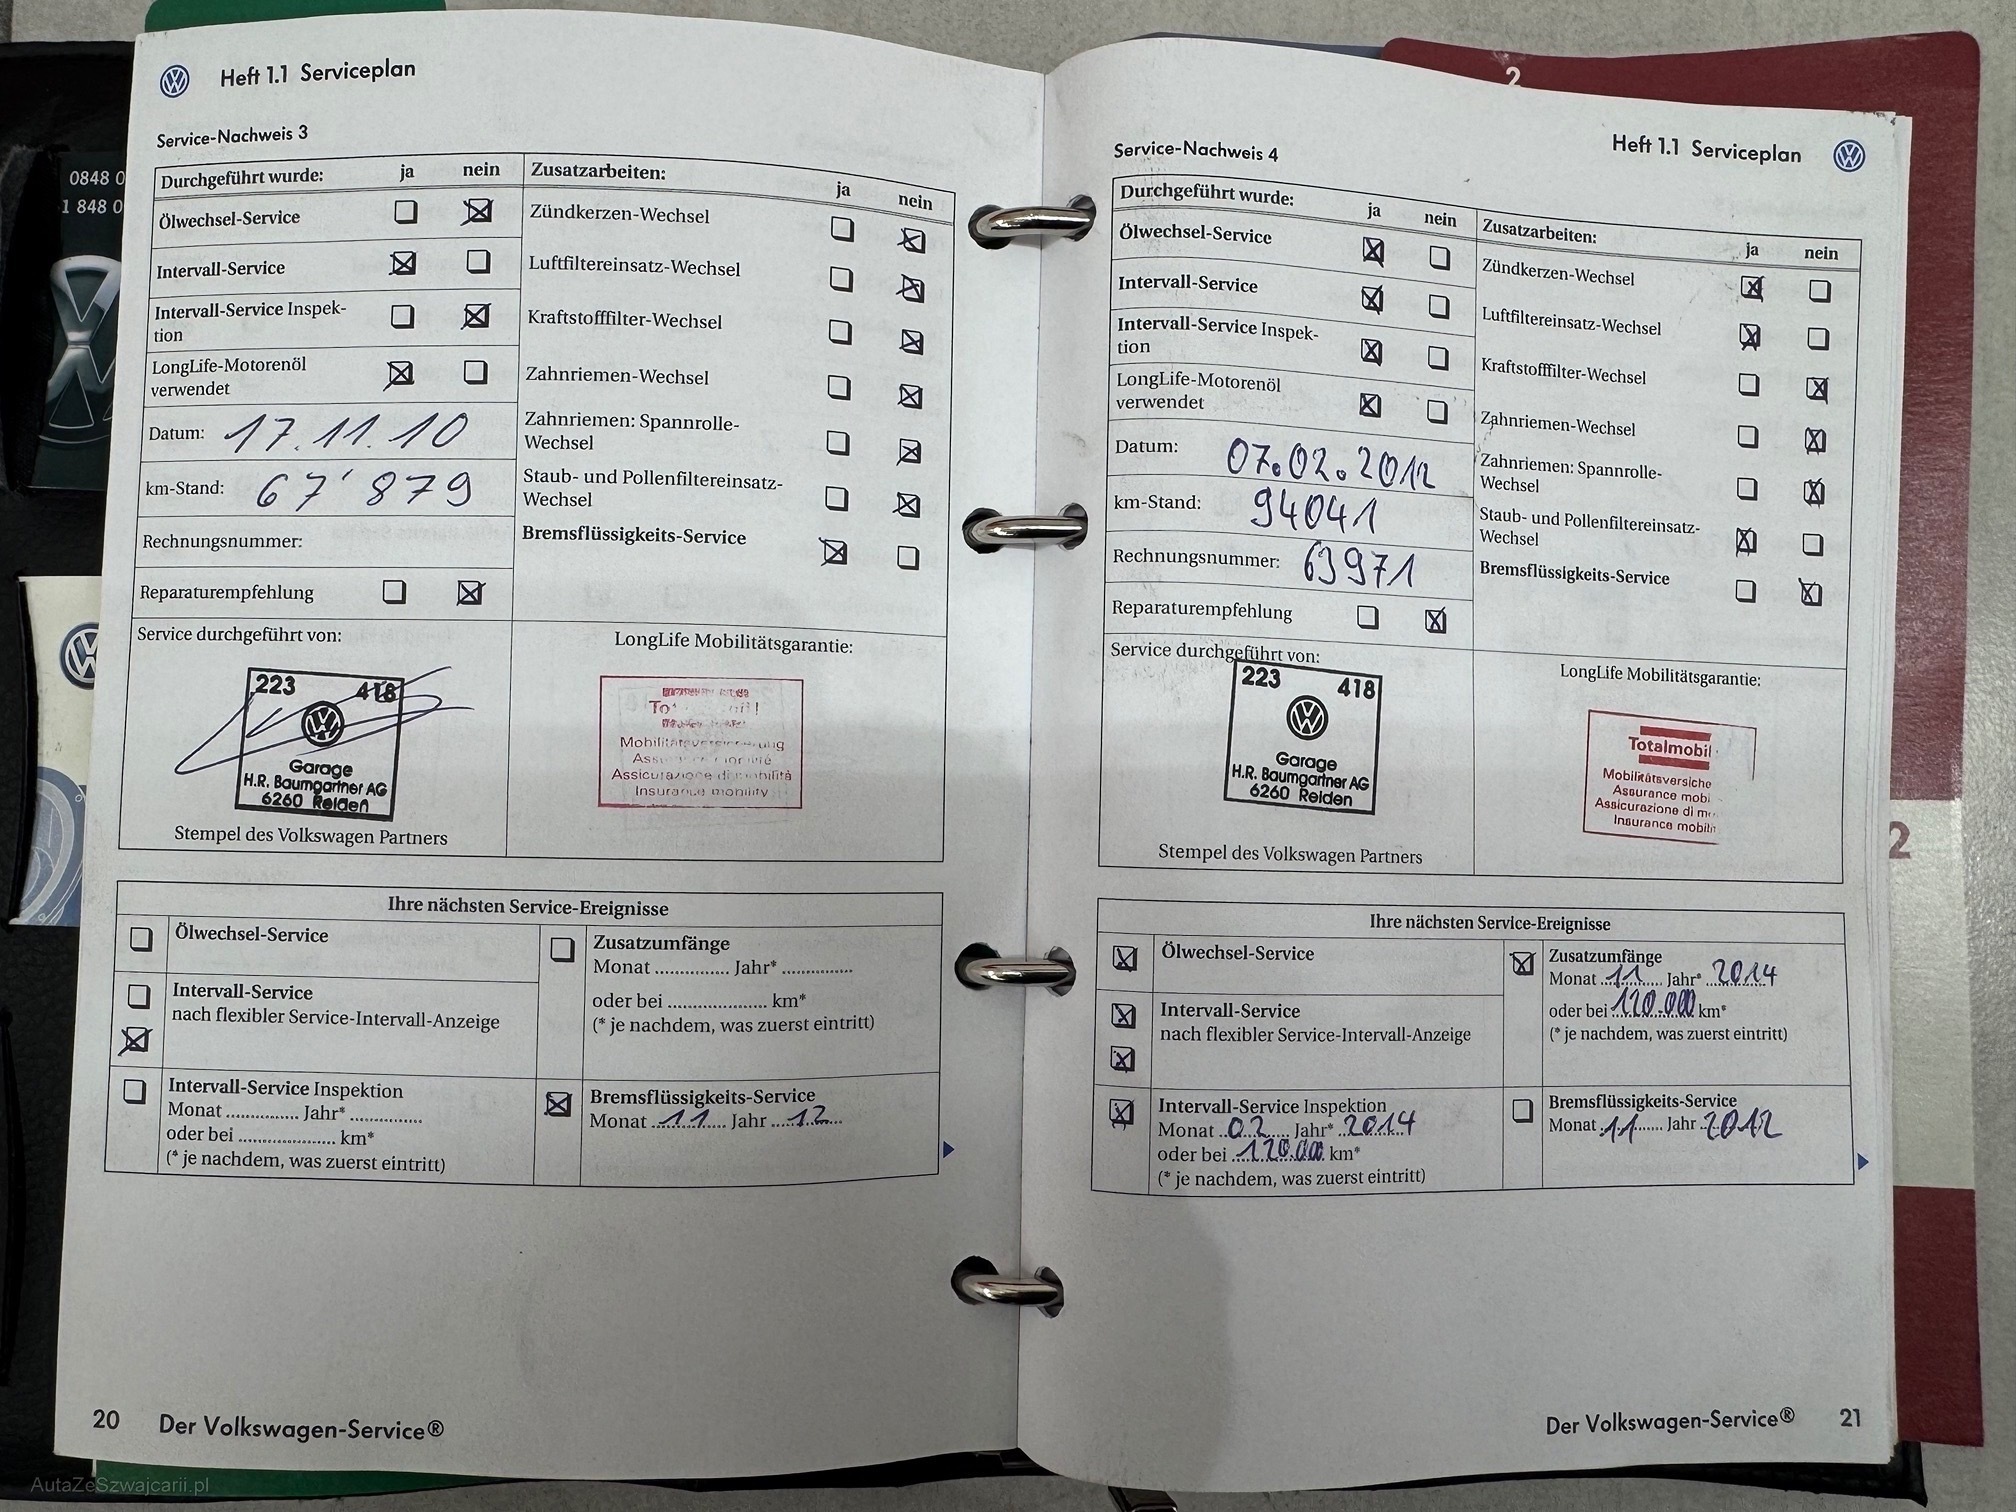 Heft 1.1 Serviceplan
Service-Nachweis 3
Durchgeführt wurde: ja nein
Ölwechsel-Service
Intervall-Service
Intervall-Service Inspek-
tion
LongLife-Motorenöl
verwendet
Datum: 17.11.10
km-Stand: 67'879
Rechnungsnummer:
Reparaturempfehlung
Zusatzarbeiten:
ja nein
Zündkerzen-Wechsel
Luftfiltereinsatz-Wechsel
Kraftstofffilter-Wechsel
Zahnriemen-Wechsel
Zahnriemen: Spannrolle-
Wechsel
Staub- und Pollenfiltereinsatz-
Wechsel
Bremsflüssigkeits-Service
Service durchgeführt von:
223 418
Garage
H.R. Baumgartner AG
6260 Reiden
Stempel des Volkswagen Partners
LongLife Mobilitätsgarantie:
Assicurazione di mobilità
Insurance mobility
Ihre nächsten Service-Ereignisse
Ölwechsel-Service
Intervall-Service
nach flexibler Service-Intervall-Anzeige
Intervall-Service Inspektion
Monat .............. Jahr* ..............
oder bei .................... km*
(* je nachdem, was zuerst eintritt)
Zusatzumfänge
Monat .............. Jahr* ..............
oder bei .................... km*
(* je nachdem, was zuerst eintritt)
Bremsflüssigkeits-Service
Monat 11 Jahr 12
20 Der Volkswagen-Service®
Heft 1.1 Serviceplan
Service-Nachweis 4
Durchgeführt wurde: ja nein
Ölwechsel-Service
Intervall-Service
Intervall-Service Inspek-
tion
LongLife-Motorenöl
verwendet
Datum: 07.02.2012
km-Stand: 94041
Rechnungsnummer: 63971
Reparaturempfehlung
Zusatzarbeiten:
ja nein
Zündkerzen-Wechsel
Luftfiltereinsatz-Wechsel
Kraftstofffilter-Wechsel
Zahnriemen-Wechsel
Zahnriemen: Spannrolle-
Wechsel
Staub- und Pollenfiltereinsatz-
Wechsel
Bremsflüssigkeits-Service
Service durchgeführt von:
223 418
Garage
H.R. Baumgartner AG
6260 Reiden
Stempel des Volkswagen Partners
LongLife Mobilitätsgarantie:
Totalmobil
Mobilitätsversiche
Assurance mobi
Assicurazione di m
Insurance mobili
Ihre nächsten Service-Ereignisse
Ölwechsel-Service
Intervall-Service
nach flexibler Service-Intervall-Anzeige
Intervall-Service Inspektion
Monat 02 Jahr* 2014
oder bei 120.000 km*
(* je nachdem, was zuerst eintritt)
Zusatzumfänge
Monat 11 Jahr* 2014
oder bei 120.000 km*
(* je nachdem, was zuerst eintritt)
Bremsflüssigkeits-Service
Monat 11 Jahr 2012
Der Volkswagen-Service® 21
2
2
0848 0
1 848 0
AutaZeSzwajcarii.pl